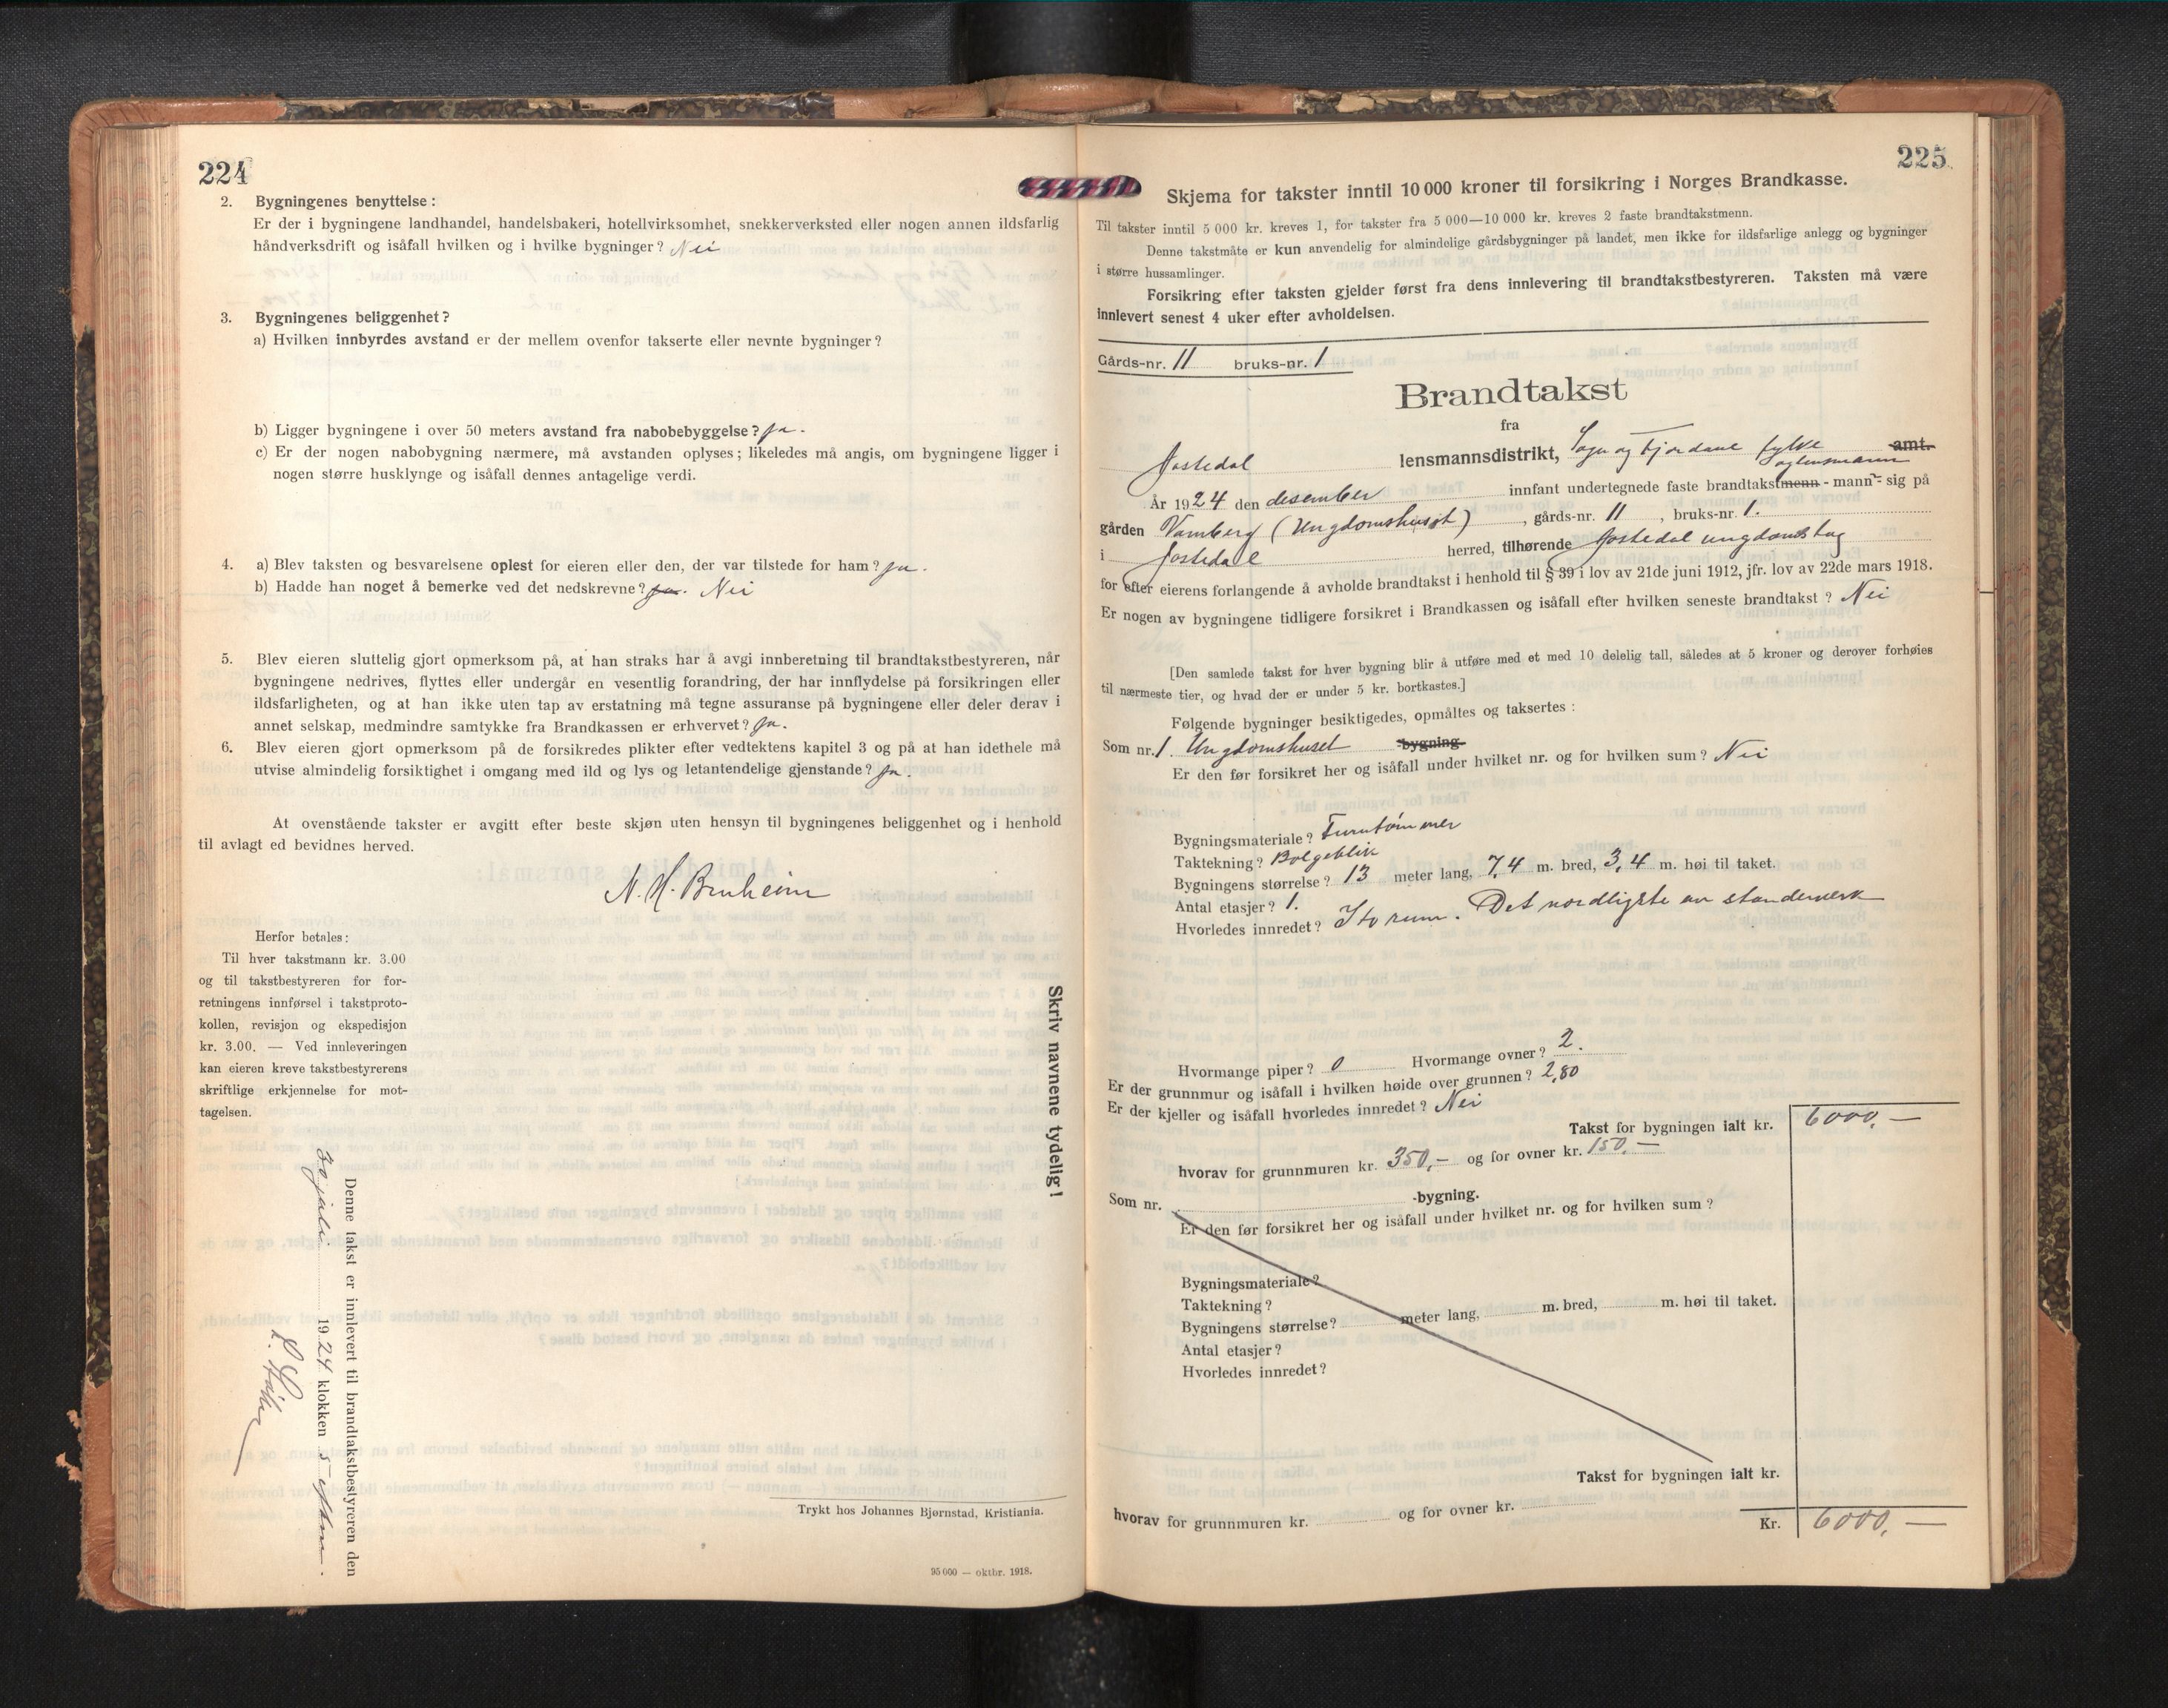 224
2. Bygningenes benyttelse:
Er der i bygningene landhandel, handelsbakeri, hotellvirksomhet, snekkerverksted eller nogen annen ildsfarlig
håndverksdrift og isåfall hvilken og i hvilke bygninger? Nei
3. Bygningenes beliggenhet?
a) Hvilken innbyrdes avstand er der mellem ovenfor takserte eller nevnte bygninger?
b) Ligger bygningene i over 50 meters avstand fra nabobebyggelse? Ja.
c) Er der nogen nabobygning nærmere, må avstanden oplyses; likeledes må angis, om bygningene ligger i
nogen større husklynge og isåfall dennes antagelige verdi.
4. a) Blev taksten og besvarelsene oplest for eieren eller den, der var tilstede for ham? Ja.
b) Hadde han noget å bemerke ved det nedskrevne? Ja. Nei
5. Blev eieren sluttelig gjort opmerksom på, at han straks har å avgi innberetning til brandtakstbestyreren, når
bygningene nedrives, flyttes eller undergår en vesentlig forandring, der har innflydelse på forsikringen eller
ildsfarligheten, og at han ikke uten tap av erstatning må tegne assuranse på bygningene eller deler derav i
annet selskap, medmindre samtykke fra Brandkassen er erhvervet? Ja.
6. Blev eieren gjort opmerksom på de forsikredes plikter efter vedtektens kapitel 3 og på at han idethele må
utvise almindelig forsiktighet i omgang med ild og lys og letantendelige gjenstande? Ja.
At ovenstående takster er avgitt efter beste skjøn uten hensyn til bygningenes beliggenhet og i henhold
til avlagt ed bevidnes herved.
N. H. Bruheim
Herfor betales:
Til hver takstmann kr. 3.00
og til takstbestyreren for for-
retningens innførsel i takstproto-
kollen, revisjon og ekspedisjon
kr. 3.00. — Ved innleveringen
kan eieren kreve takstbestyrerens
skriftlige erkjennelse for mot-
tagelsen.
Skriv navnene tydelig!
Denne takst er innlevert til brandtakstbestyreren den
30 juli 1924 klokken 5 efterm.
Trykt hos Johannes Bjørnstad, Kristiania.
95 000 — oktbr. 1918.
225
Skjema for takster inntil 10 000 kroner til forsikring i Norges Brandkasse.
Til takster inntil 5 000 kr. kreves 1, for takster fra 5 000—10 000 kr. kreves 2 faste brandtakstmenn.
Denne takstmåte er kun anvendelig for almindelige gårdsbygninger på landet, men ikke for ildsfarlige anlegg og bygninger
i større hussamlinger.
Forsikring efter taksten gjelder først fra dens innlevering til brandtakstbestyreren. Taksten må være
innlevert senest 4 uker efter avholdelsen.
Gårds-nr. 11 bruks-nr. 1
Brandtakst
fra
Jostedal lensmannsdistrikt, Sogn og Fjordane fylke amt.
og lensmann
År 1924 den desember innfant undertegnede faste brandtakstmenn - mann - sig på
gården Vamberg (Ungdomshuset), gårds-nr. 11, bruks-nr. 1.
i Jostedal herred, tilhørende Jostedal ungdomslag
for efter eierens forlangende å avholde brandtakst i henhold til § 39 i lov av 21de juni 1912, jfr. lov av 22de mars 1918.
Er nogen av bygningene tidligere forsikret i Brandkassen og isåfall efter hvilken seneste brandtakst? Nei
[Den samlede takst for hver bygning blir å utføre med et med 10 delelig tall, således at 5 kroner og derover forhøies
til nærmeste tier, og hvad der er under 5 kr. bortkastes.]
Følgende bygninger besiktigedes, opmåltes og taksertes:
Som nr. 1 Ungdomshuset -bygning
Er den før forsikret her og isåfall under hvilket nr. og for hvilken sum? Nei
Bygningsmateriale? Furutömmer
Taktekning? Bølgeblik
Bygningens størrelse? 13 meter lang, 7,4 m. bred, 3,4 m. høi til taket.
Antal etasjer? 1.
Hvorledes innredet? I to rum. Det nordligste av standerverk
Hvormange piper? 0 Hvormange ovner? 2.
Er der grunnmur og isåfall i hvilken høide over grunnen? 2,80
Er der kjeller og isåfall hvorledes innredet? Nei
Takst for bygningen ialt kr. 6000,—
hvorav for grunnmuren kr. 350,— og for ovner kr. 150,—
Som nr. -bygning.
Er den før forsikret her og isåfall under hvilket nr. og for hvilken sum?
Bygningsmateriale?
Taktekning?
Bygningens størrelse? meter lang, m. bred, m. høi til taket.
Antal etasjer?
Hvorledes innredet?
Takst for bygningen ialt kr.
hvorav for grunnmuren kr. og for ovner kr.
Kr. 6000,—